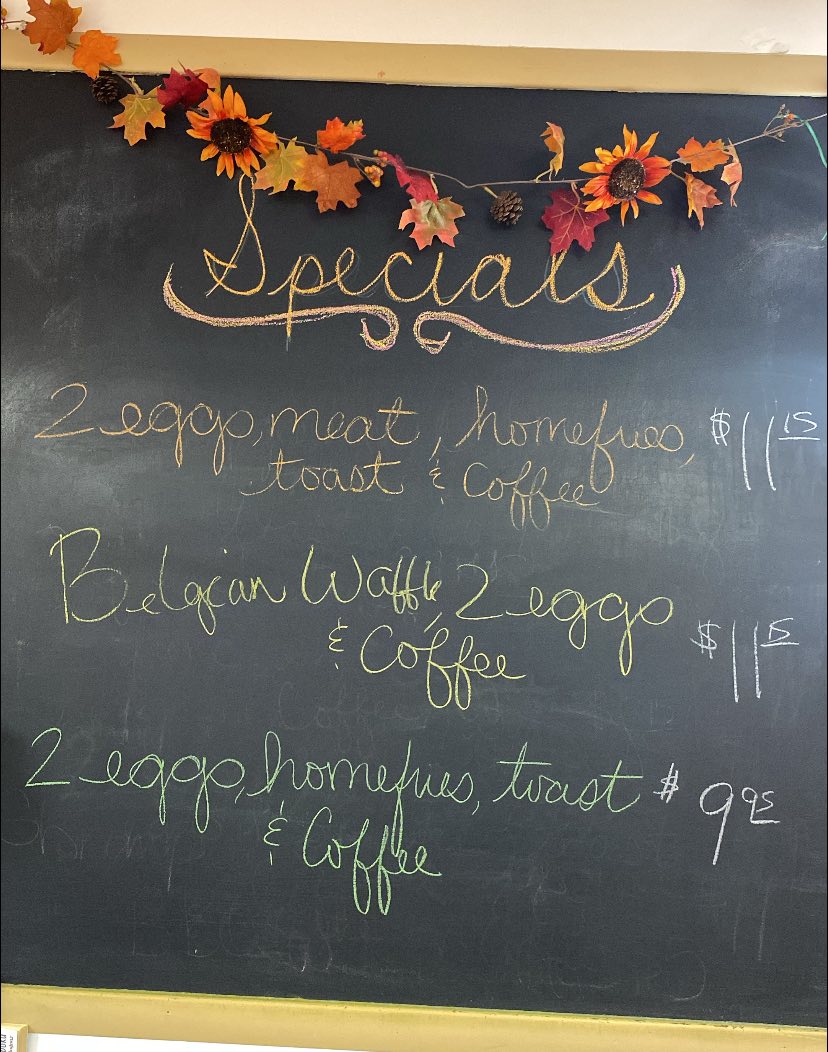 Specials
2 eggs, meat, homefries, $11 15
toast & Coffee
Belgian Waffle, 2 eggs
& Coffee $11 15
2 eggs, homefries, toast $9 95
& Coffee